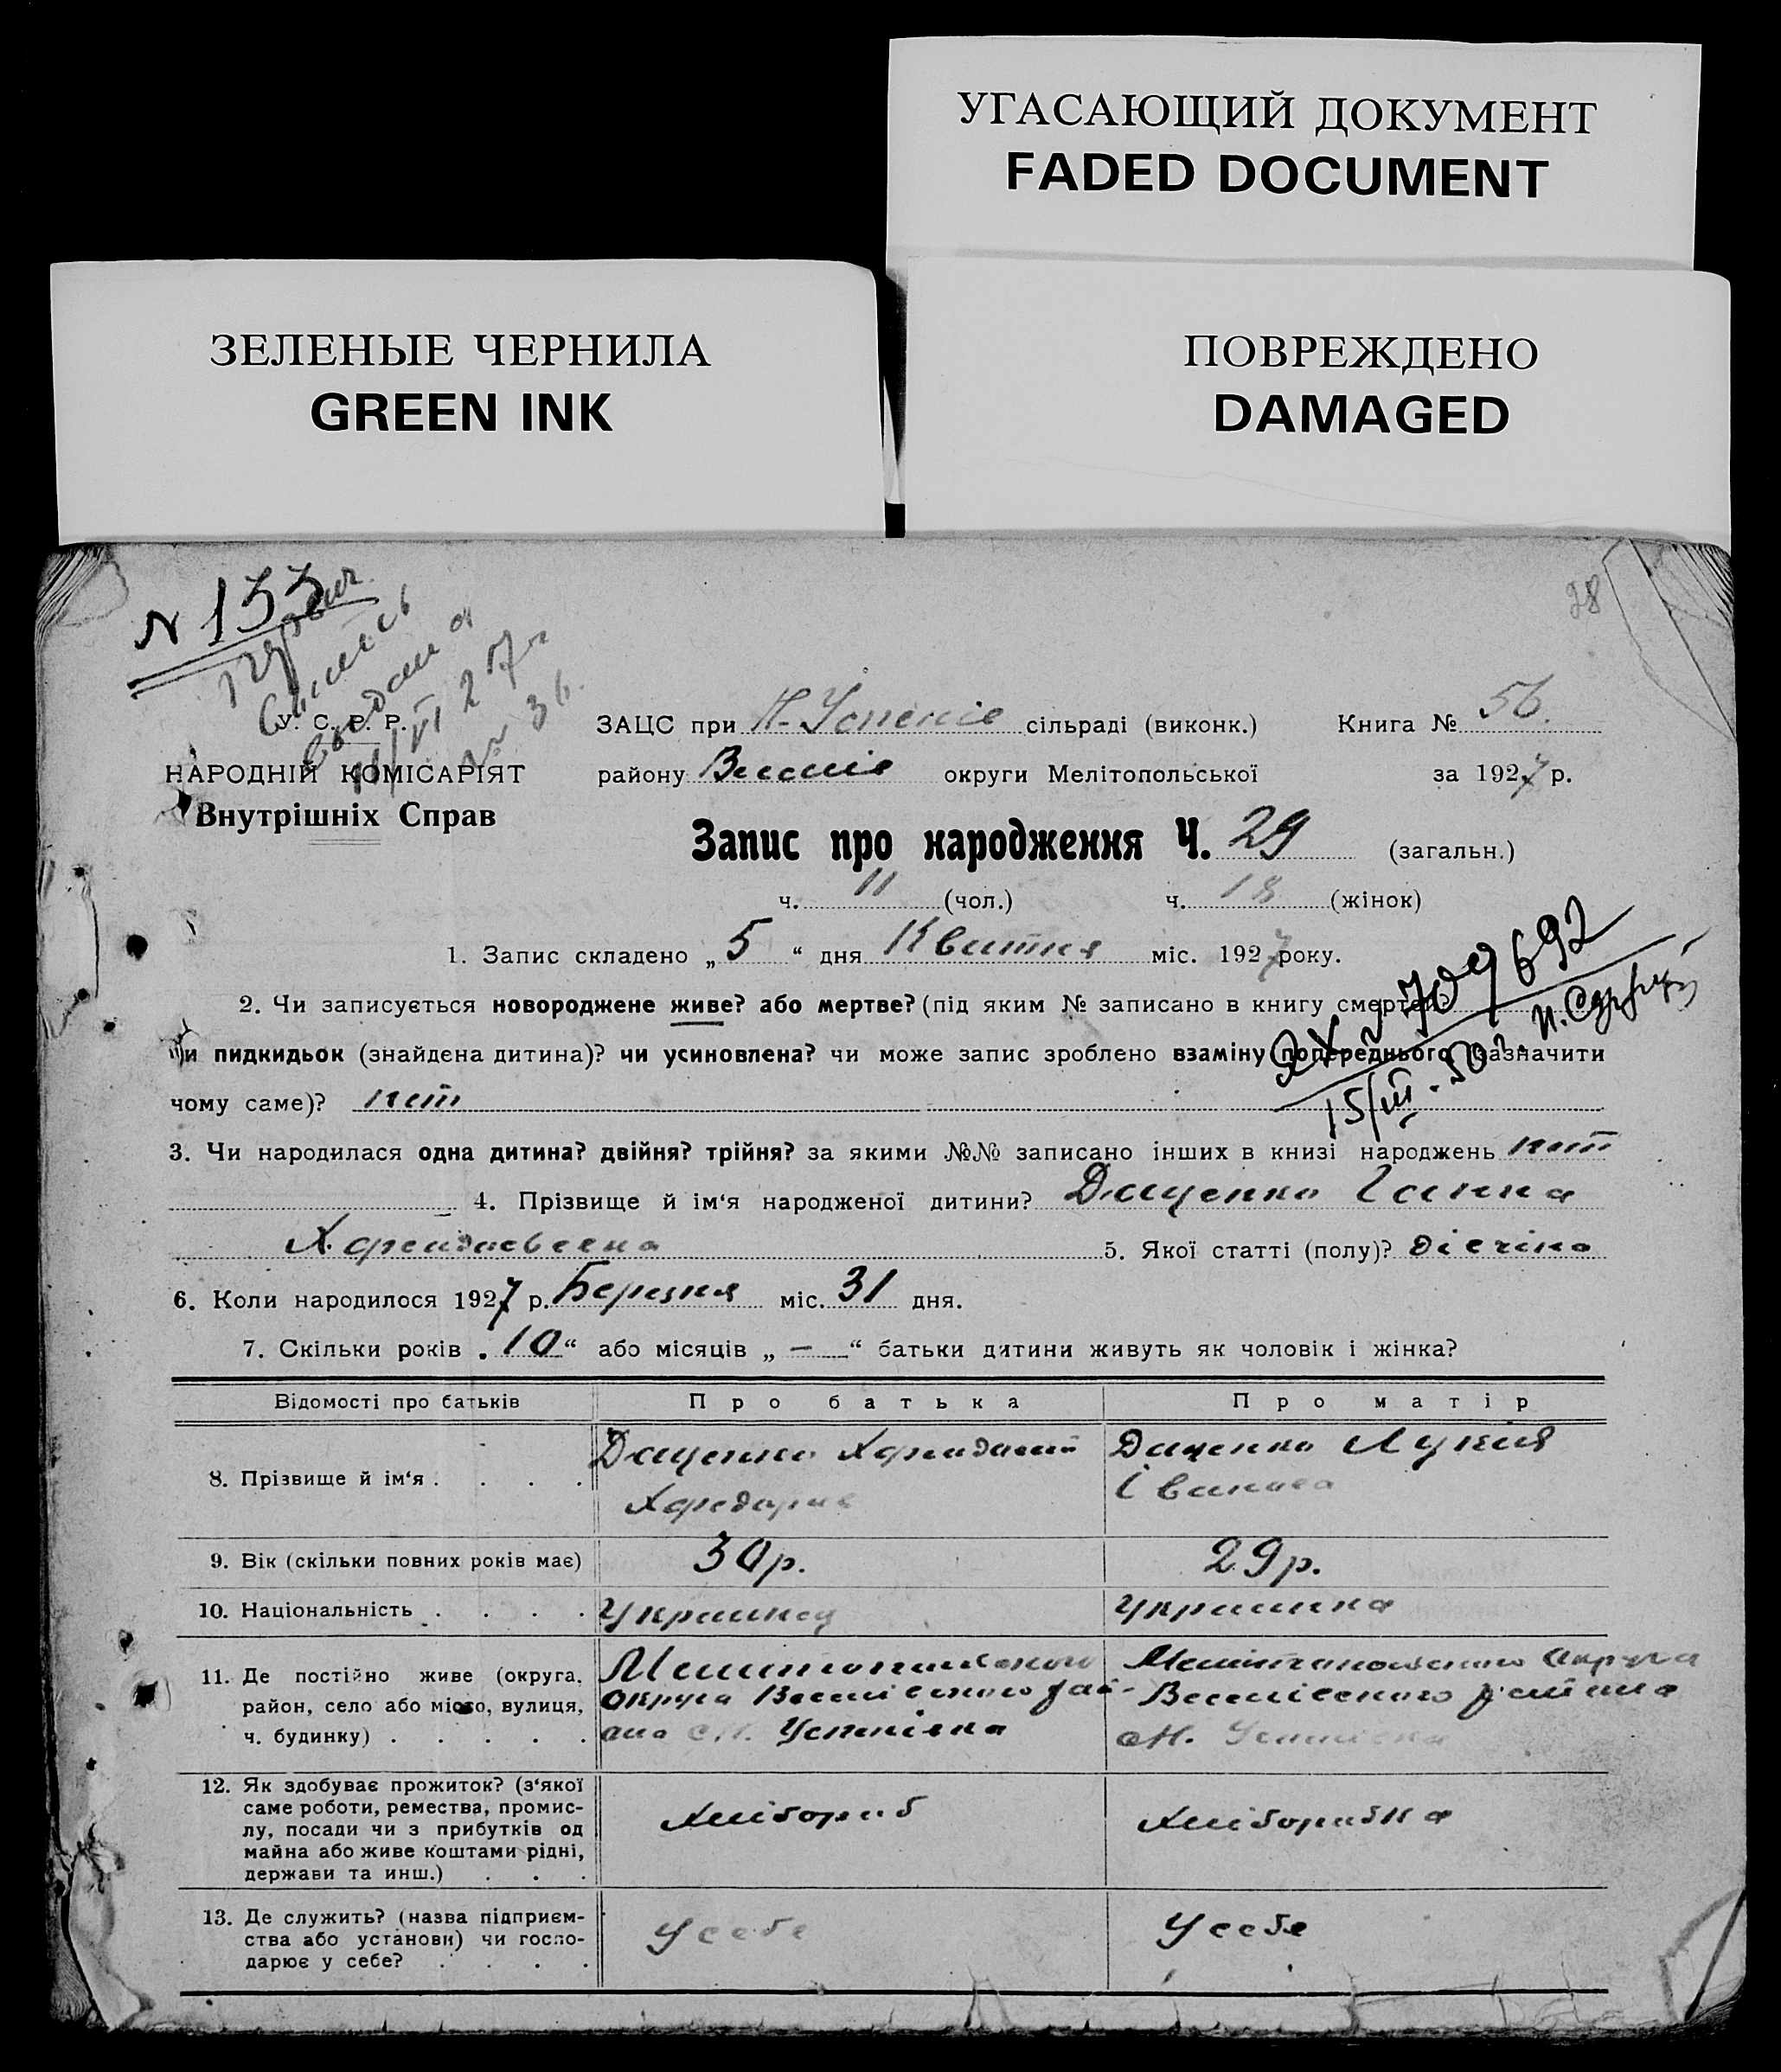 УГАСАЮЩИЙ ДОКУМЕНТ
FADED DOCUMENT
ЗЕЛЕНЫЕ ЧЕРНИЛА
GREEN INK
ПОВРЕЖДЕНО
DAMAGED
N 133
28
У. С. Р. Р.
НАРОДНІЙ КОМІСАРІЯТ
Внутрішніх Справ
ЗАЦС при Н-Успенів сільраді (виконк.) Книга № 56.
району Веселів округи Мелітопольської за 1927 р.
Запис про народження Ч. 29 (загальн.)
ч. 11 (чол.) ч. 18 (жінок)
1. Запис складено „ 5 “ дня Квитня міс. 1927 року.
2. Чи записується новороджене живе? або мертве? (під яким № записано в книгу смертей?
чи пидкидьок (знайдена дитина)? чи усиновлена? чи може запис зроблено взаміну попереднього (зазначити
чому саме)? нет
709692
15/III-50 г.
3. Чи народилася одна дитина? двійня? трійня? за якими №№ записано інших в книзі народжень нет
4. Прізвище й ім‘я народженої дитини? Даценко Ганна
5. Якої статті (полу)? дівчіна
6. Коли народилося 1927 р. Березня міс. 31 дня.
7. Скільки років „ 10 “ або місяців „ — “ батьки дитини живуть як чоловік і жінка?
Відомості про батьків Про батька Про матір
8. Прізвище й ім‘я . . . . Даценко Даценко Лукия
Іванова
9. Вік (скільки повних років має) 30 р. 29 р.
10. Національність . . . . Украинец Украинка
11. Де постійно живе (округа, Мелитопольского Мелітопольского округа
район, село або місто, вулиця, округа Веселівского рай- Веселівского раиона
ч. будинку) . . . . . она с Н. Успенівка с Н. Успенівка
12. Як здобуває прожиток? (з‘якої
саме роботи, ремества, промис- Хлібороб Хліборобка
лу, посади чи з прибутків од
майна або живе коштами рідні,
держави та инш.) . . .
13. Де служить? (назва підприєм- У себе У себе
ства або установи) чи госпо-
дарює у себе? . . . .